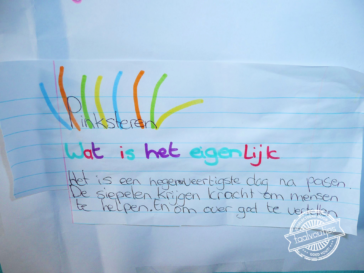 Pinksteren
Wat is het eigenlijk
Het is een negenveertigste dag na pasen
De siepelen krijgen kracht om mensen
te helpen. En om over god te